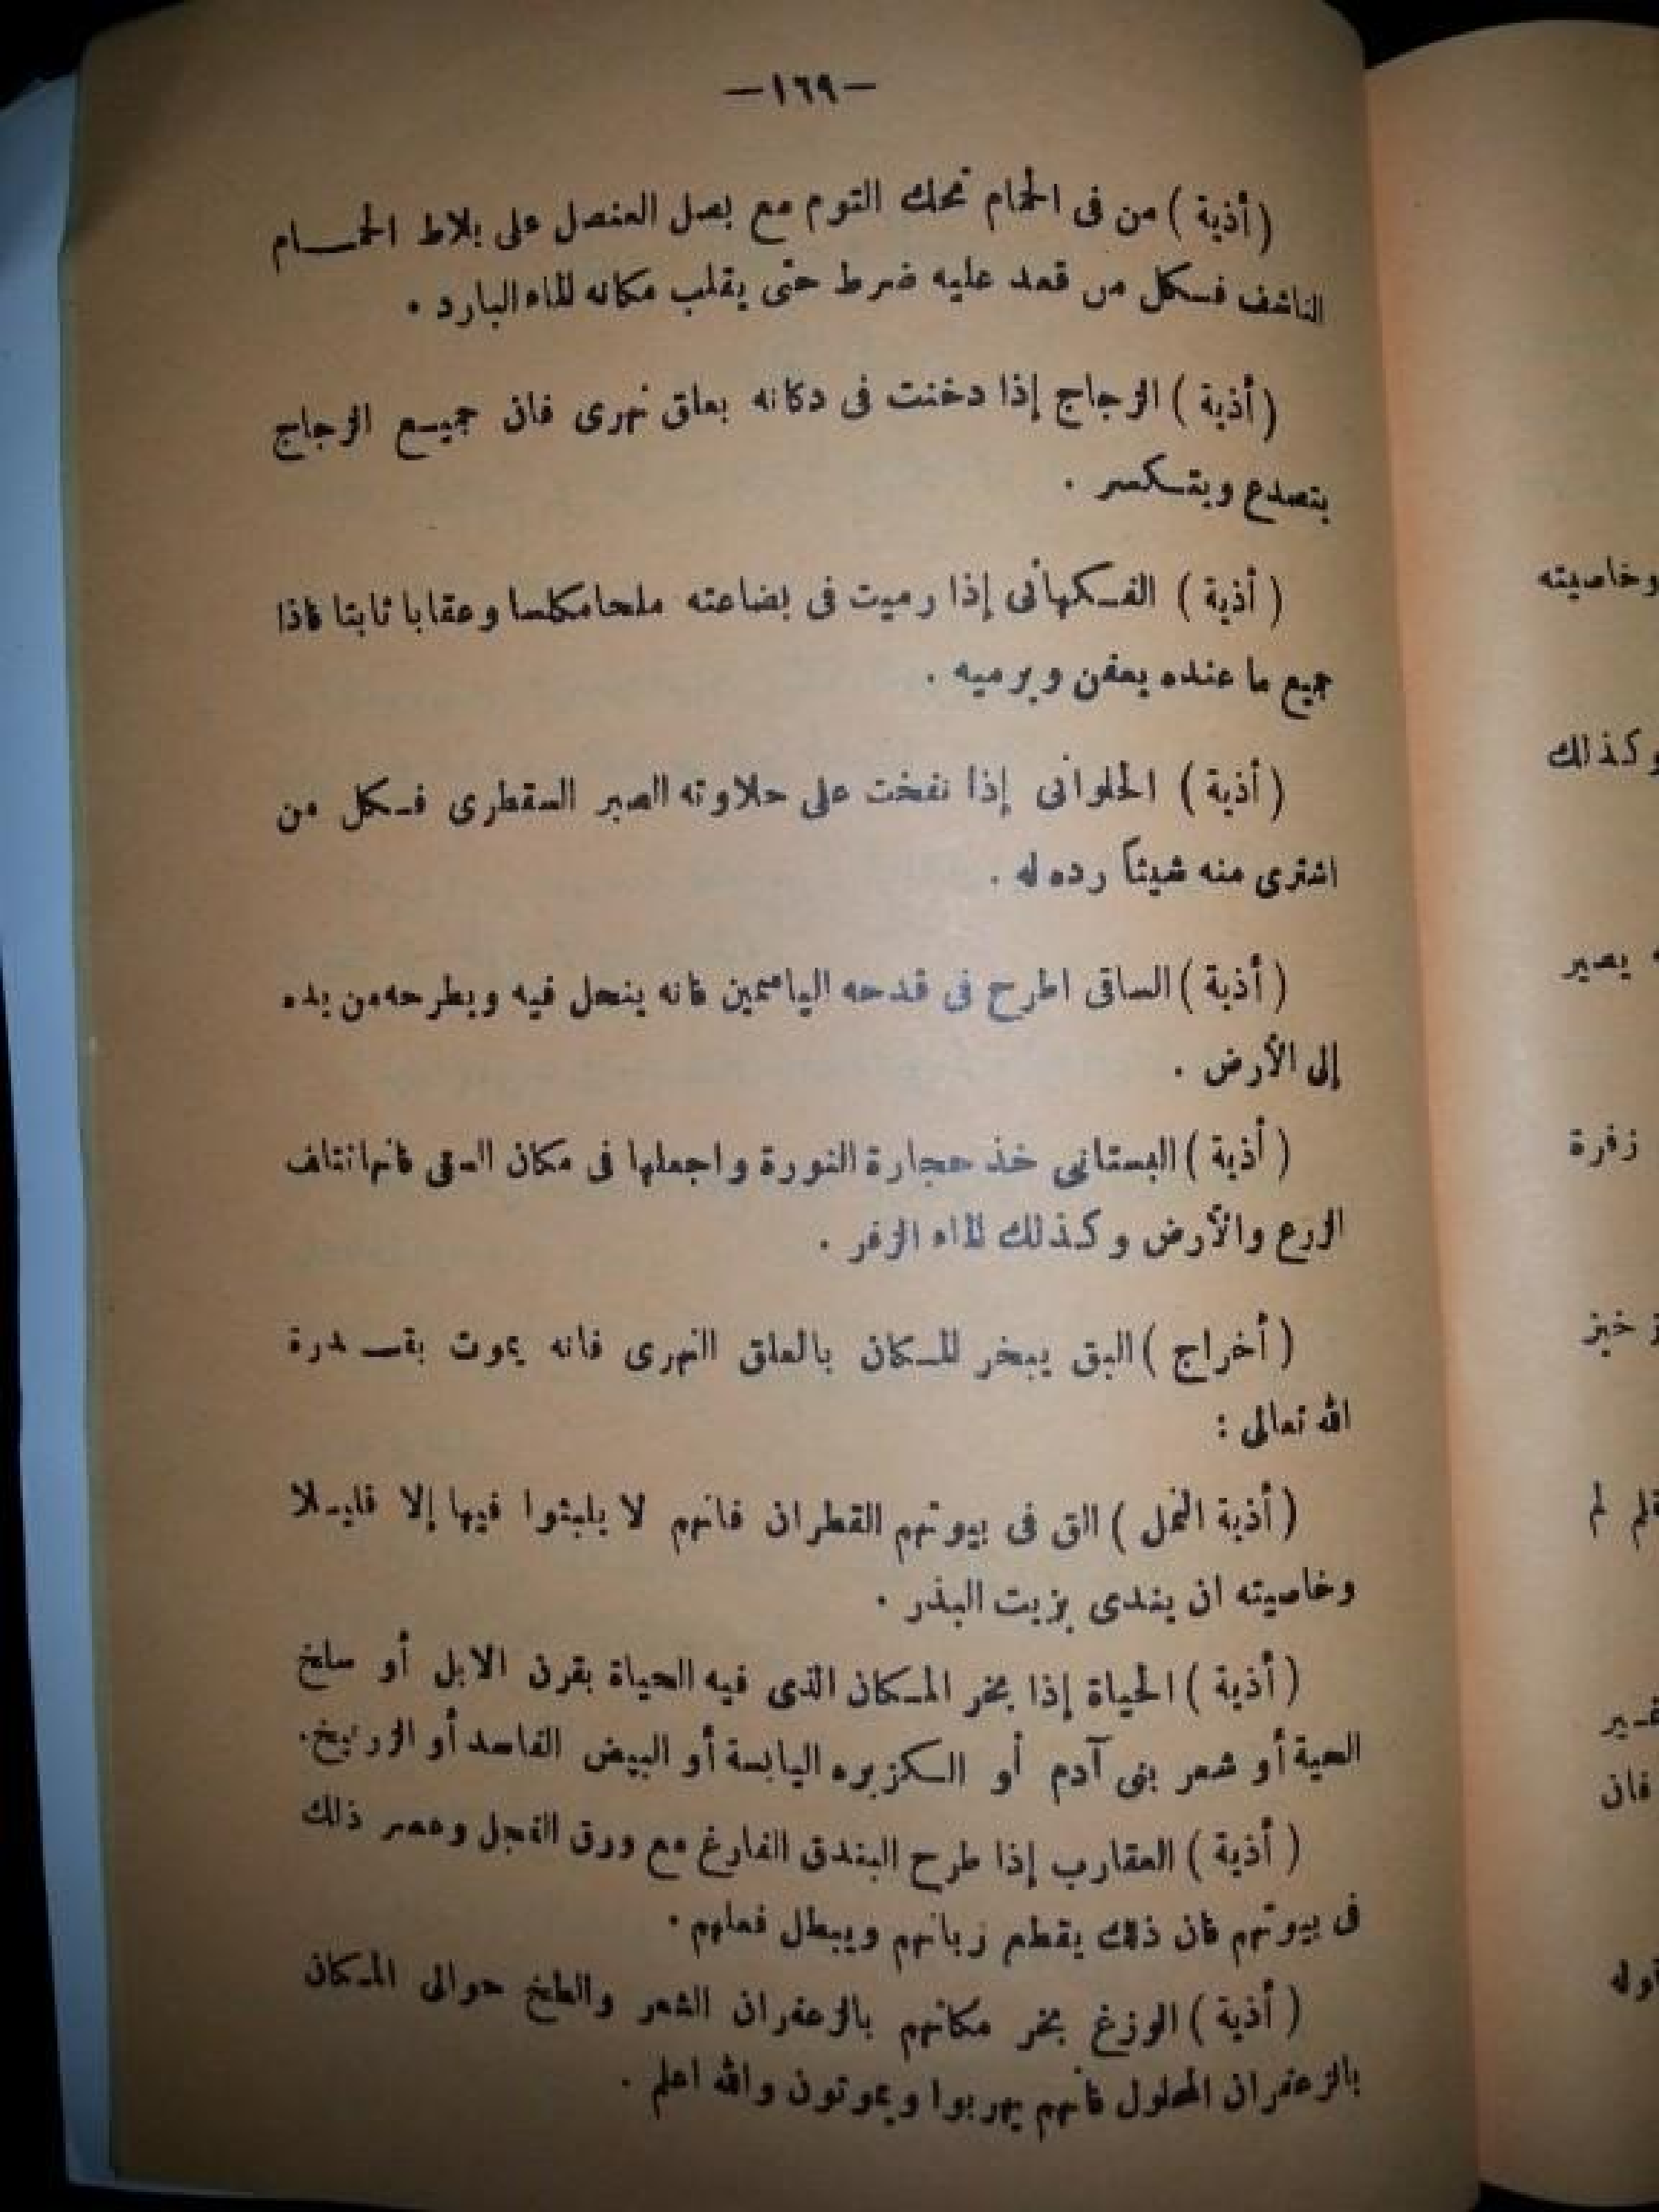 —١٦٩—
(أذية) من فى الحمام تحك الثوم مع بصل العنصل على بلاط الحمام
الناشف فكل من قعد عليه ضرط حتى يقلب مكانه الماء البارد .
(أذية) الزجاج إذا دخنت فى دكانه بعلق نهرى فان جميع الزجاج
يتصدع ويتكسر .
(أذية) الفكهانى إذا رميت فى بضاعته ملحا مكلسا وعقابا ثابتا فاذا
جميع ما عنده يعفن ويرميه .
(أذية) الحلوانى إذا نفخت على حلاوته الصبر السقطرى فكل من
اشترى منه شيئاً رده له .
(أذية) الساقى اطرح فى قدحه الياسمين فانه ينحل فيه ويطرحه من يده
إلى الأرض .
(أذية) البستانى خذ حجارة النورة واجعلها فى مكان السقى فانها تتلف
الزرع والأرض وكذلك الماء الزفر .
(أخراج) البق يبخر المكان بالعلق النهرى فانه يموت بقدرة
الله تعالى :
(أذية النمل) الق فى بيوتهم القطران فانهم لا يلبثوا فيها إلا قليلا
وخاصيته ان يندى بزيت البذر .
(أذية) الحياة إذا بخر المكان الذى فيه الحياة بقرن الابل أو سلخ
الحية أو شعر بنى آدم أو الكزبره اليابسة أو البيض الفاسد أو الزرنيخ .
(أذية) العقارب إذا طرح البندق الفارغ مع ورق الفجل وعصر ذلك
فى بيوتهم فان ذلك يقطع زبانهم ويبطل فعلهم .
(أذية) الوزغ بخر مكانهم بالزعفران الشعر والطخ حوالى المكان
بالزعفران المحلول فانهم يهربوا ويموتون والله اعلم .
وخاصيته
وكذلك
يصير
زفرة
خبز
لم
فان